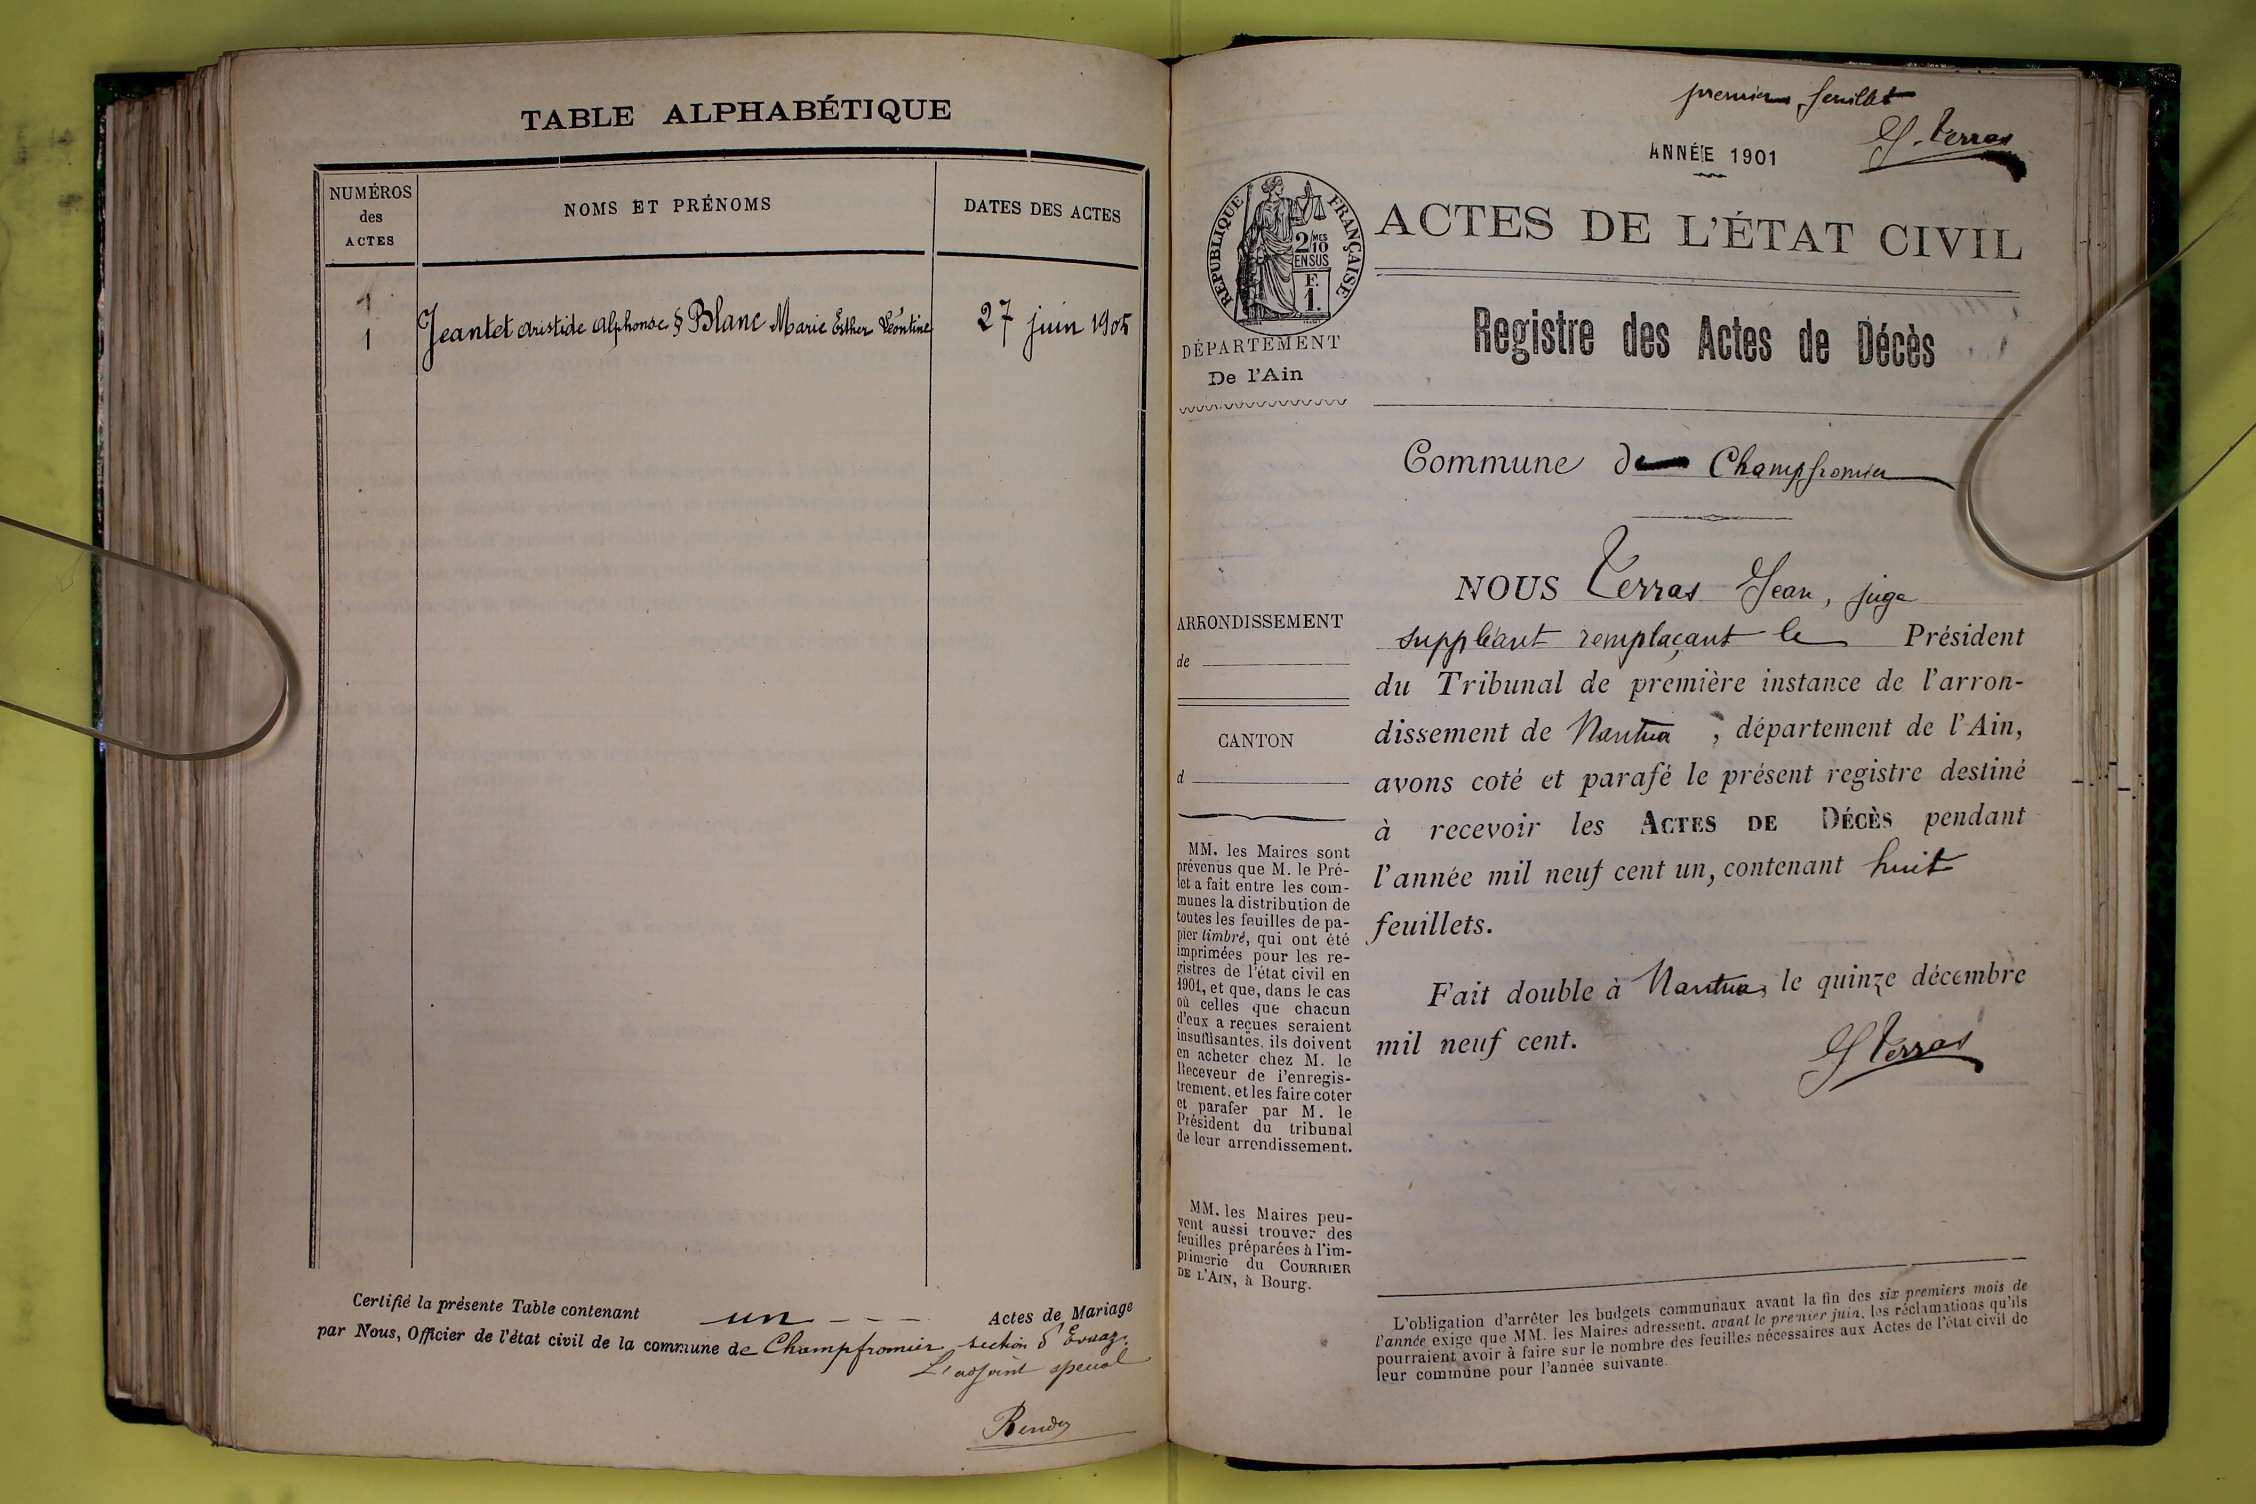 TABLE ALPHABÉTIQUE
NUMÉROS
des
ACTES
NOMS ET PRÉNOMS
DATES DES ACTES
1
1
Jeantet Aristide Alphonse & Blanc Marie Esther Léontine
27 juin 1905
Certifié la présente Table contenant un - - - - Actes de Mariage
par Nous, Officier de l'état civil de la commune de Champfromier section d'Evuaz.
L'adjoint spécial
premier feuillet
J. Terras
ANNÉE 1901
RÉPUBLIQUE FRANÇAISE
2/10 MES
EN SUS
F.
1.
ACTES DE L'ÉTAT CIVIL
DÉPARTEMENT
De l'Ain
Registre des Actes de Décès
Commune de Champfromier
ARRONDISSEMENT
de
CANTON
d
MM. les Maires sont
prévenus que M. le Pré-
fet a fait entre les com-
munes la distribution de
toutes les feuilles de pa-
pier timbré, qui ont été
imprimées pour les re-
gistres de l'état civil en
1901, et que, dans le cas
où celles que chacun
d'eux a reçues seraient
insuffisantes, ils doivent
en acheter chez M. le
Receveur de l'enregis-
trement, et les faire coter
et parafer par M. le
Président du tribunal
de leur arrondissement.
MM. les Maires peu-
vent aussi trouver des
feuilles préparées à l'im-
primerie du COURRIER
DE L'AIN, à Bourg.
NOUS Terras Jean, juge
suppléant remplaçant le Président
du Tribunal de première instance de l'arron-
dissement de Nantua, département de l'Ain,
avons coté et parafé le présent registre destiné
à recevoir les ACTES DE DÉCÈS pendant
l'année mil neuf cent un, contenant huit
feuillets.
Fait double à Nantua, le quinze décembre
mil neuf cent.
J Terras
L'obligation d'arrêter les budgets communaux avant la fin des six premiers mois de
l'année exige que MM. les Maires adressent, avant le premier juin, les réclamations qu'ils
pourraient avoir à faire sur le nombre des feuilles nécessaires aux Actes de l'état civil de
leur commune pour l'année suivante.